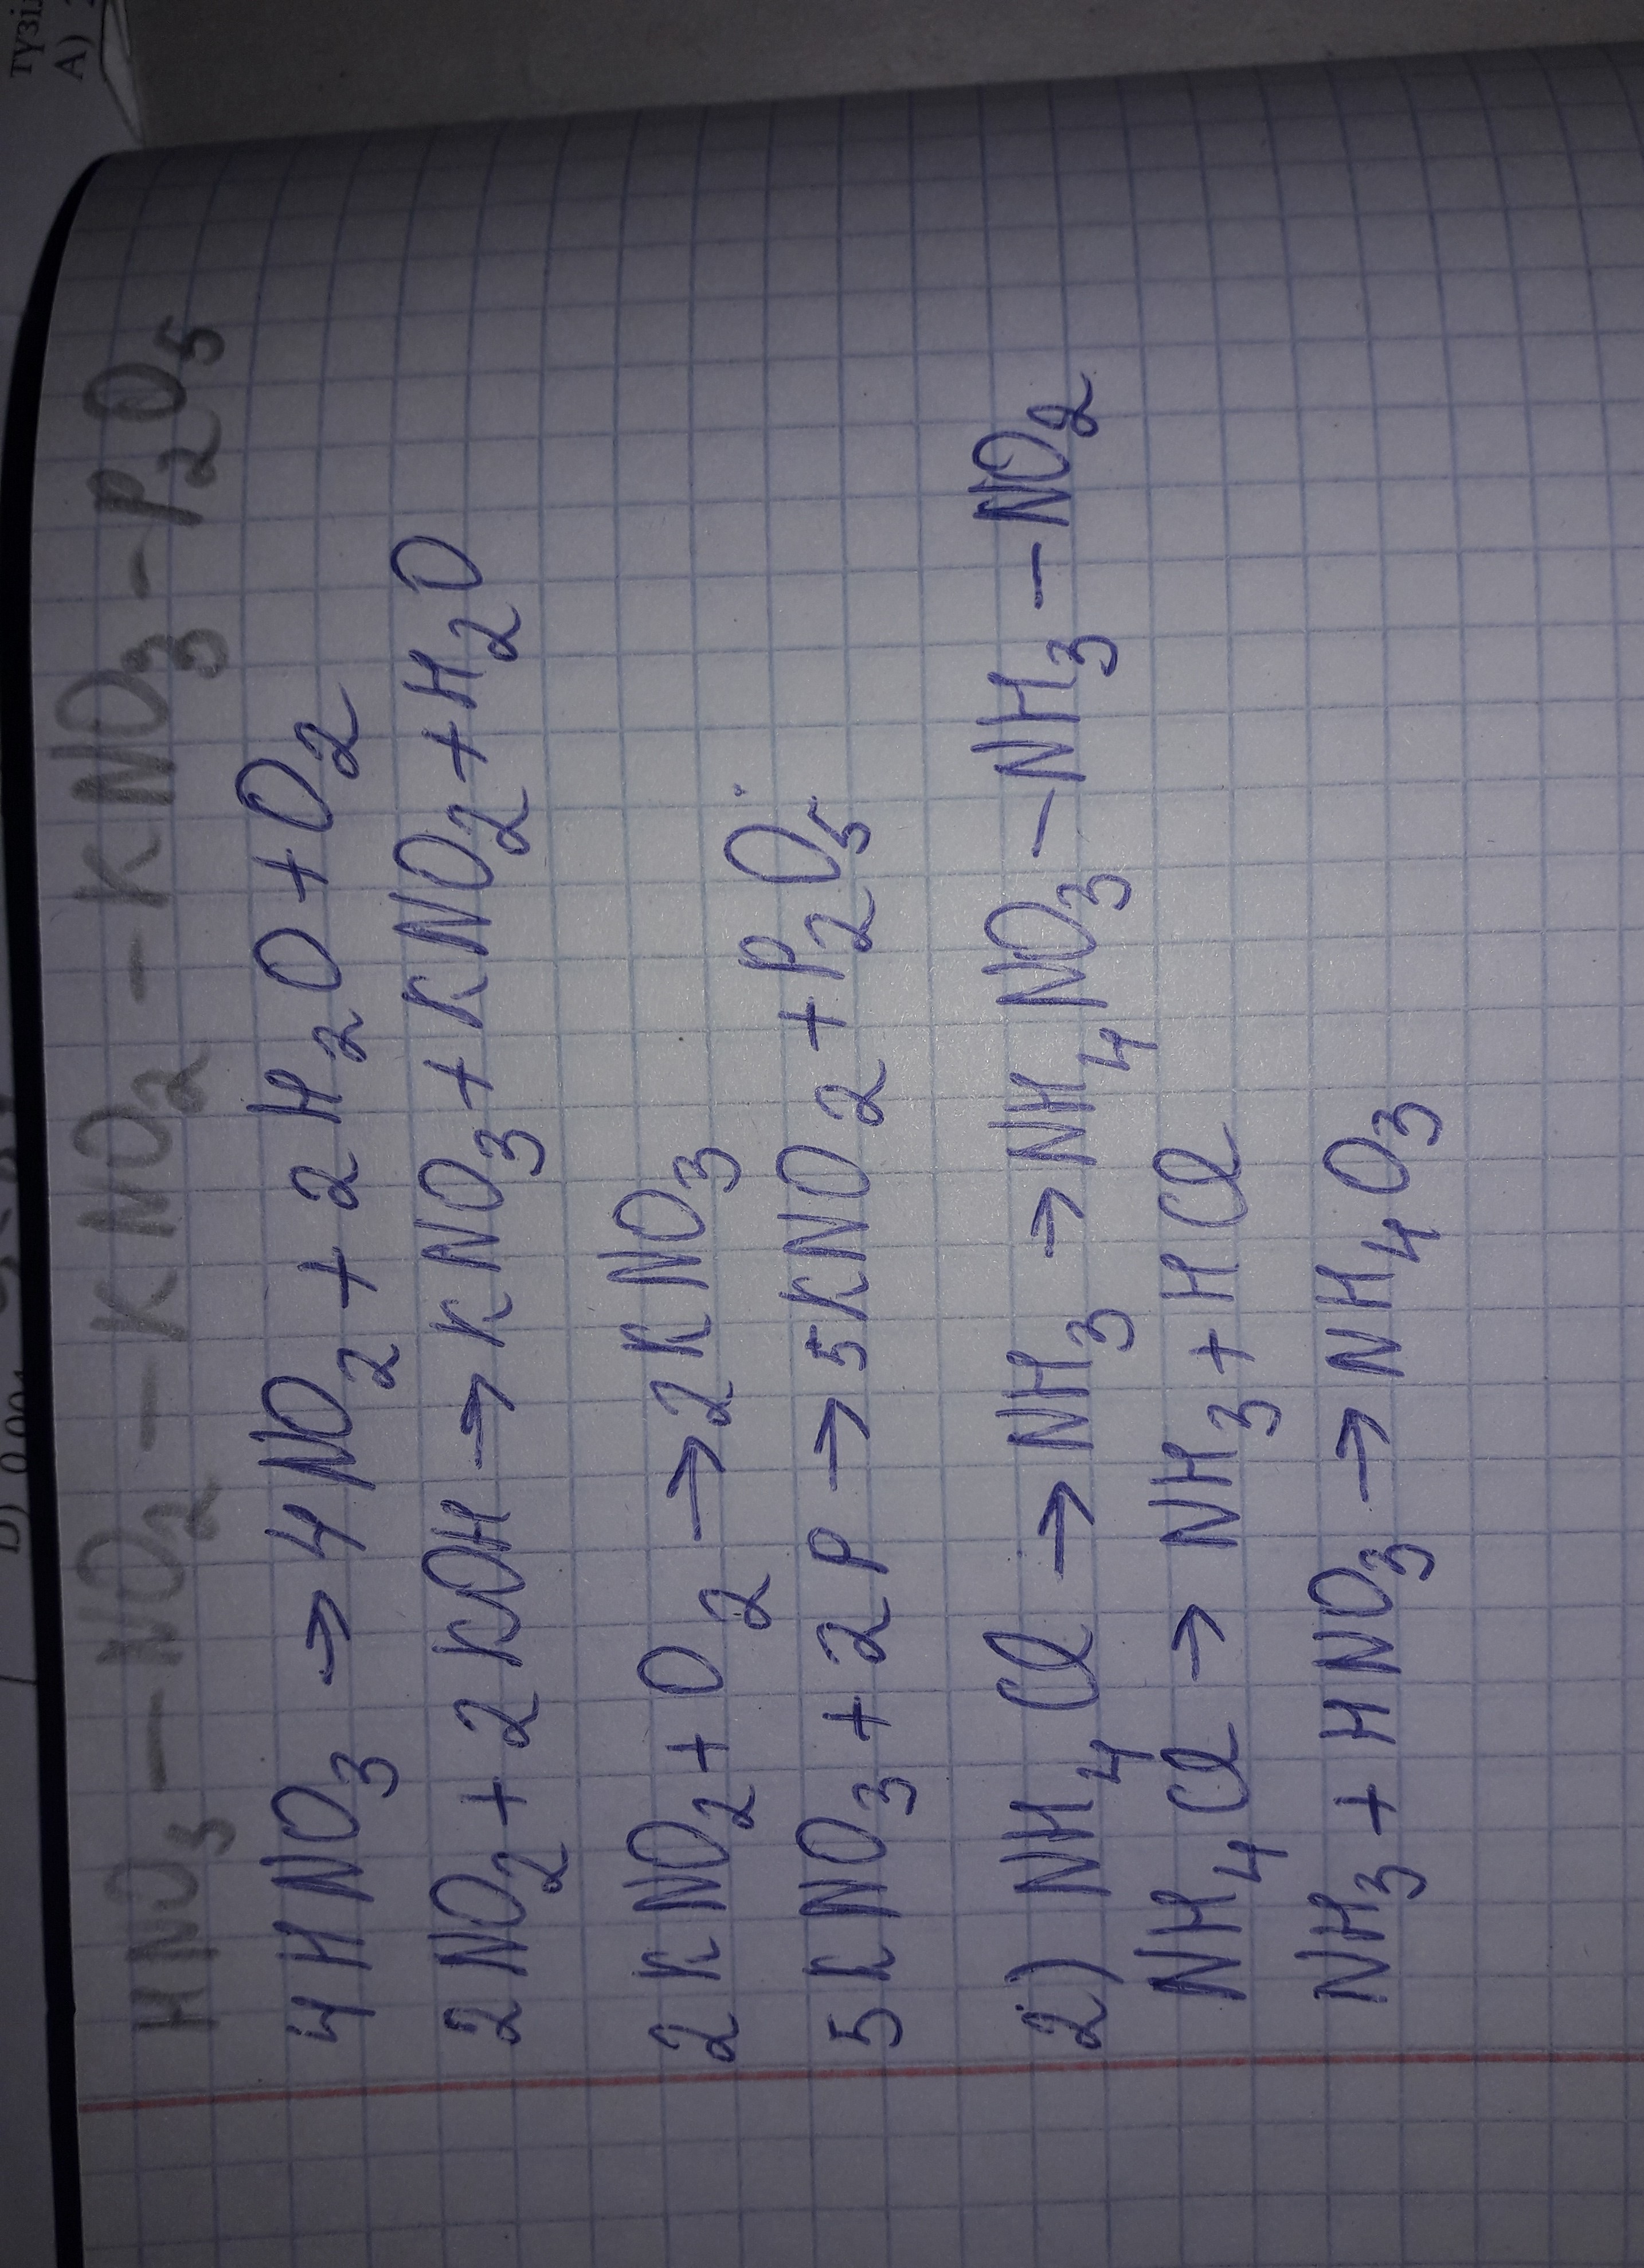 түзіл
А)
HNO₃ — NO₂ — KNO₂ — KNO₃ — P₂O₅
4HNO₃ → 4NO₂ + 2H₂O + O₂
2NO₂ + 2KOH → KNO₃ + KNO₂ + H₂O
2KNO₂ + O₂ → 2KNO₃
5KNO₃ + 2P → 5KNO₂ + P₂O₅
2) NH₄Cl → NH₃ → NH₄NO₃ — NH₃ — NO₂
NH₄Cl → NH₃ + HCl
NH₃ + HNO₃ → NH₄O₃